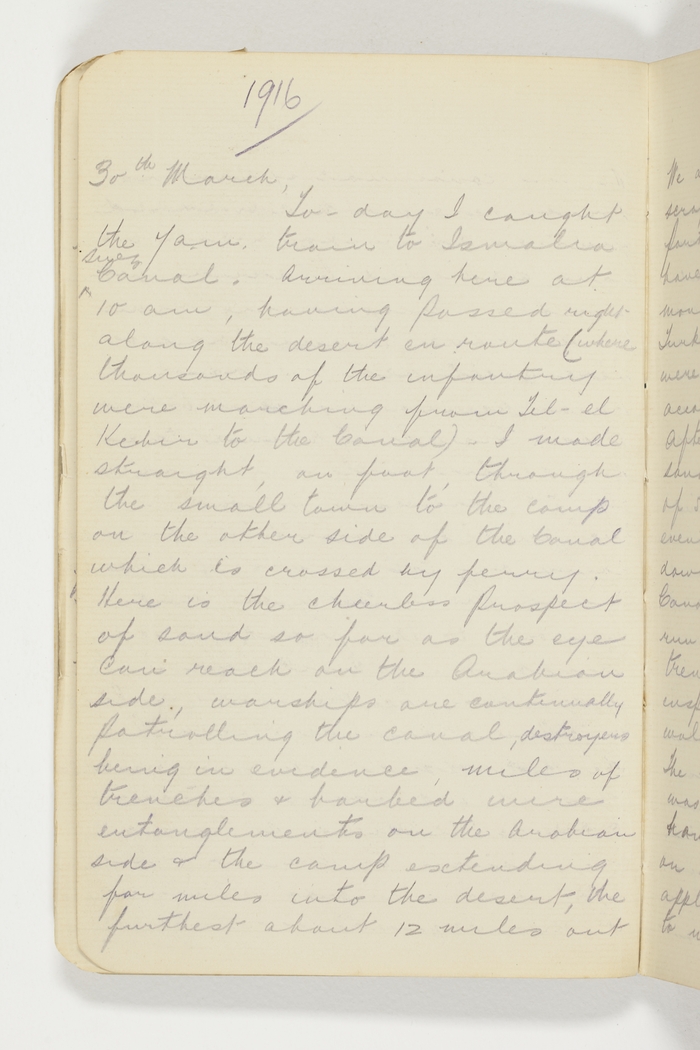 1916
30th March,
To-day I caught
the 7 am. train to Ismalia
Suez
Canal. Arriving here at
10 am, having passed right
along the desert en route (where
thousands of the infantry
were marching from Tel-el
Kebir to the Canal) - I made
straight, on foot, through
the small town to the camp
on the other side of the Canal
which is crossed by ferry.
Here is the cheerless prospect
of sand so far as the eye
can reach on the Arabian
side, warships are continually
patrolling the canal, destroyers
being in evidence, miles of
trenches & barbed wire
entanglements on the Arabian
side & the camp extending
for miles into the desert, the
furthest about 12 miles out
We
The
on
to